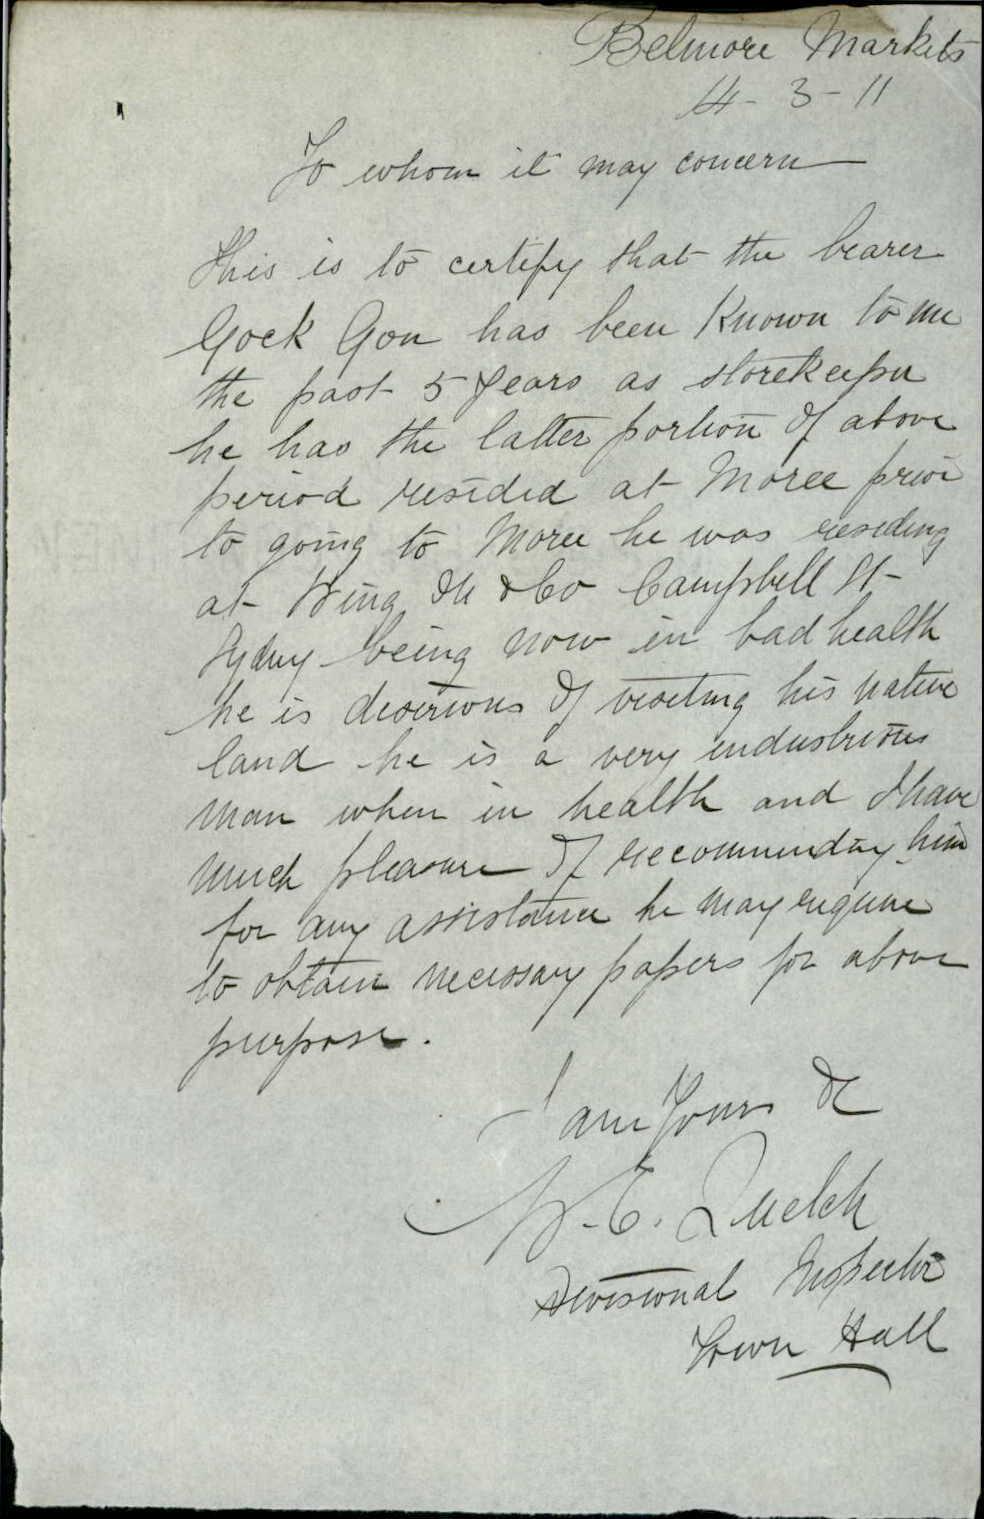 Belmore Markets
14-3-11
To whom it may concern
This is to certify that the bearer
Gock Gon has been Known to me
the past 5 years as storekeeper
he has the latter portion of above
period resided at Moree prior
to going to Moree he was residing
at Wing & Co Campbell St
Sydney being now in bad health
he is desirious of visiting his native
land he is a very industrious
man when in health and I have
much pleasure of recommending him
for any assistance he may require
to obtain necessary papers for above
purpose.
I am Yours &c
W.E. Quelch
Divisional Inspector
Town Hall